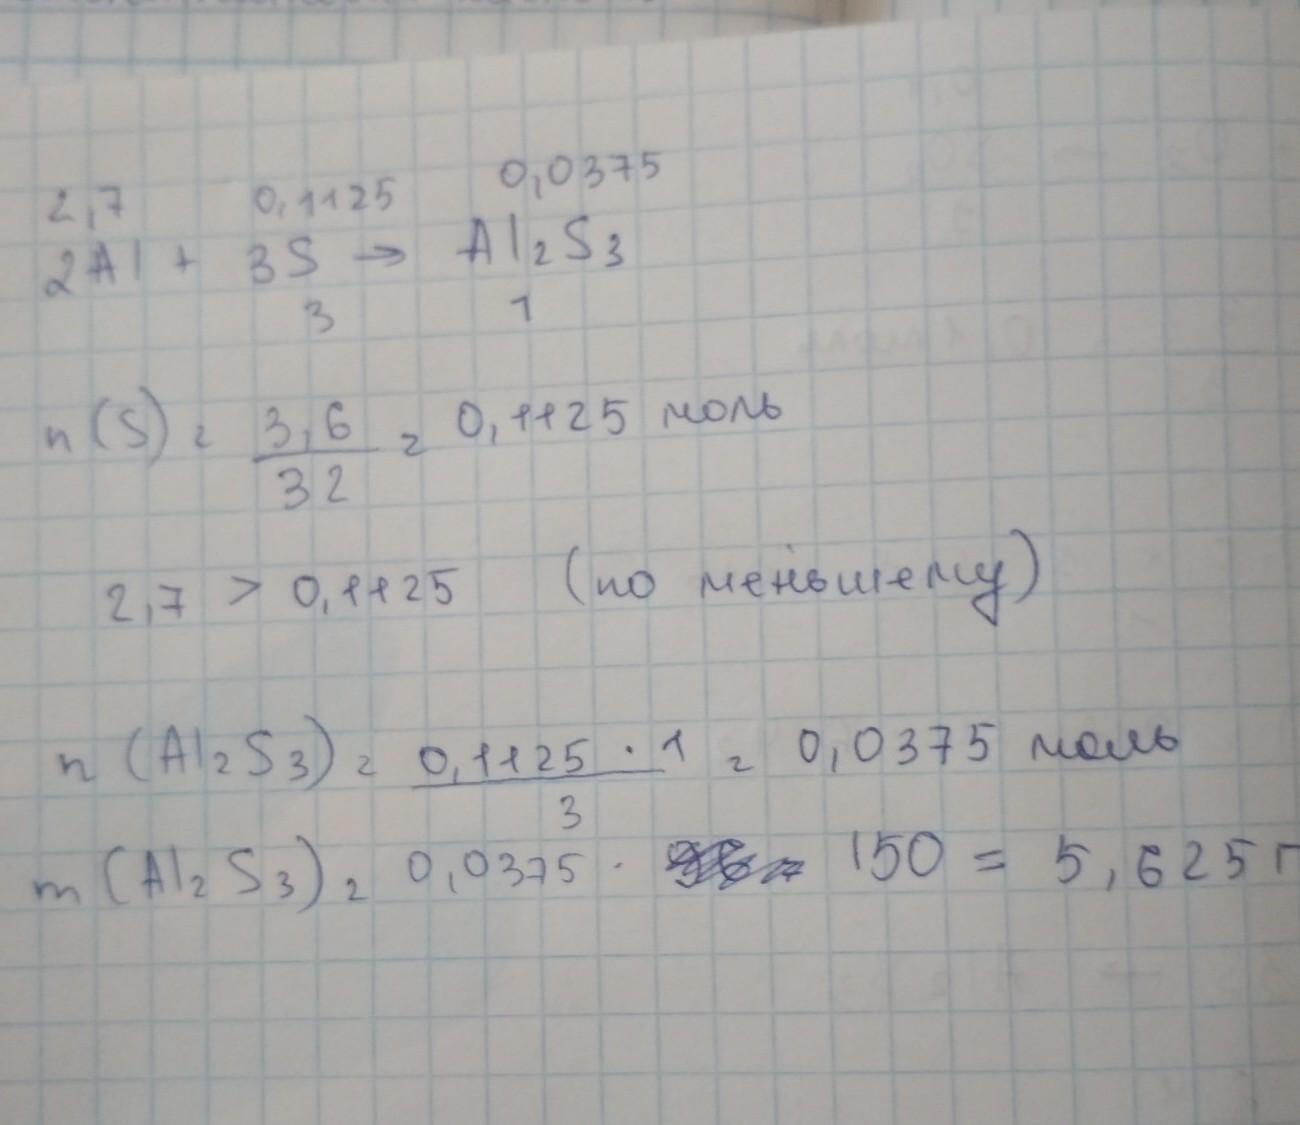 2,7 0,1125 0,0375
2Al + 3S → Al₂S₃
3 1
n(S) = 3,6/32 = 0,1125 моль
2,7 > 0,1125 (по меньшему)
n(Al₂S₃) = 0,1125 · 1/3 = 0,0375 моль
m(Al₂S₃) = 0,0375 · 150 = 5,625 г